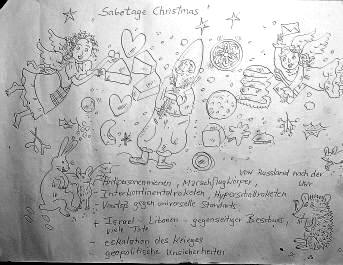 Sabotage Christmas!
von Russland nach der
- Antipersonenminen, Marschflugkörper,
Interkontinentalraketen Hyperschallraketen
- Verstoß gegen universelle Standards
+ Israel - Libanon - gegenseitiger Beschuss,
viele Tote
- eskalation des Krieges
geopolitische Unsicherheiten